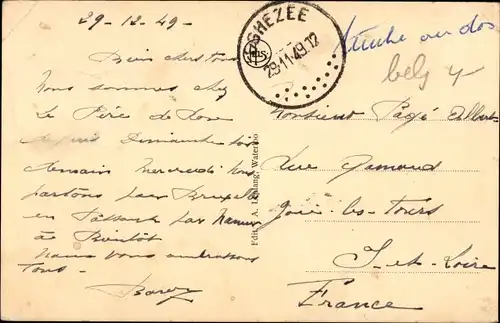 29-12-49-
Bien chers tous
Nous sommes chez
Le Père de
depuis Dimanche soir
demain Mercredi nous
partons par Bruxelles
en passant par Namur
à Bientôt
nous vous embrassons
tous-
GHEZEE
29.11.49.12
Edit. A. Waterloo
belg
Monsieur Pagé Albert
Rue
Joué-les-Tours
I-et-Loire
France